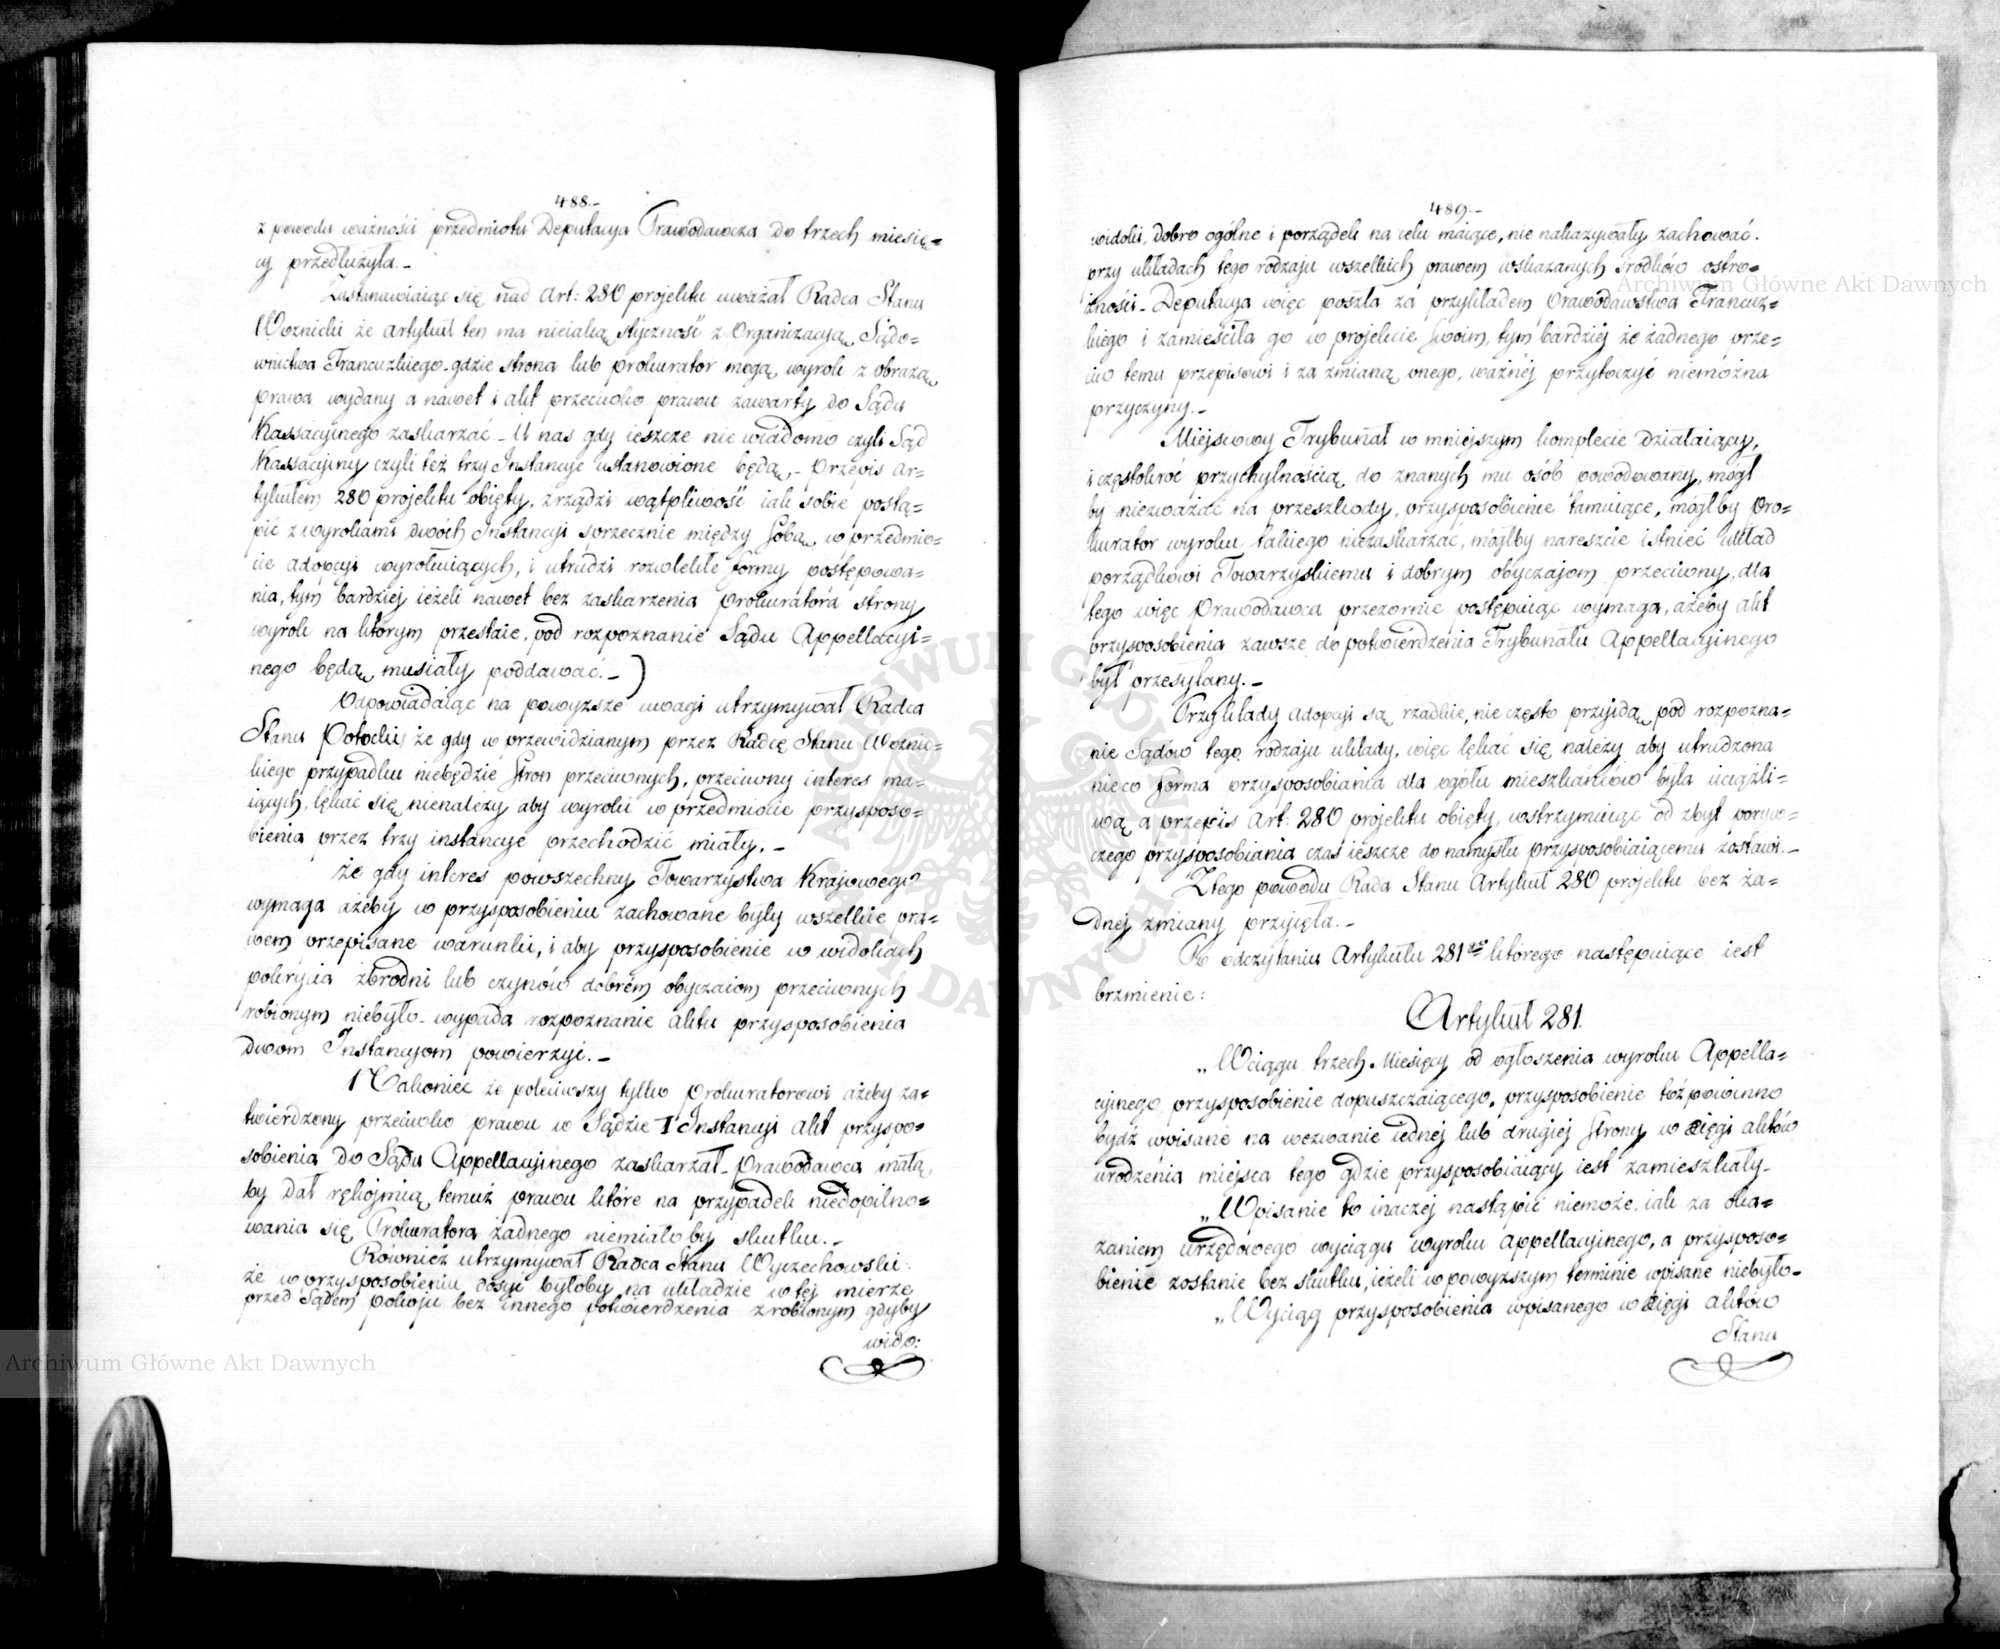 488.-
z powodu ważności przedmiotu Deputacya Prawodawcza do trzech miesię=
cy przedłużyła.-
Zastanawiaiąc się nad Art: 280 projektu uważał Radca Stanu
Woznicki że artykuł ten ma nieiaką styczność z Organizacyą Sądo=
wnictwa Francuzkiego. gdzie strona lub prokurator mogą wyrok z obrazą
prawa wydany a nawet i akt przeciwko prawu zawarty do Sądu
Kassacyinego zaskarzać - U nas gdy ieszcze nie wiadomo czyli Sąd
Kassacyiny czyli też trzy Instancye ustanowione będą, - przepis ar=
tykułem 280 projektu obięty, zrządzi wątpliwość iak sobie postą=
pić z wyrokami dwóch Instancyi sprzecznie między sobą w przedmio=
cie adopcyi wyrokuiących, i utrudzi rozwlekłe formy postępowa=
nia, tym bardziej ieżeli nawet bez zaskarzenia prokuratora strony
wyrok na którym przestaie, pod rozpoznanie Sądu Appellacyi=
nego będą musiały poddawać. -)
Odpowiadaiąc na powyzsze uwagi utrzymywał Radca
Stanu Potocki, że gdy w przewidzianym przez Radcę Stanu Woznic=
kiego przypadku niebędzie stron przeciwnych, przeciwny interes ma=
iących, lękać się nienależy aby wyroki w przedmiocie przysposo=
bienia przez trzy instancye przechodzić miały. -
Że gdy interes powszechny Towarzystwa Krajowego
wymaga ażeby w przysposobieniu zachowane były wszelkie pra=
wem przepisane warunki, i aby przysposobienie w widokach
pokrycia zbrodni lub czynów dobrém obyczaiom przeciwnych
robionym niebyło - wypada rozpoznanie aktu przysposobienia
dwom Instancyom powierzyć. -
Nakoniec że poleciwszy tylko prokuratorowi ażeby za=
twierdzony przeciwko prawu w Sądzie I Instancyi akt przyspo=
sobienia do Sądu Appellacyinego zaskarżał - Prawodawca małą
by dał rękojmią temuż prawu które na przypadek niedopilno=
wania się Prokuratora żadnego niemiałoby skutku. -
Również utrzymywał Radca Stanu Wyczechowski:
że w przysposobieniu dosyć byłoby na układzie w téj mierze
przed Sądem pokoju bez innego potwierdzenia zrobionym gdyby
wido:
489.-
widoki, dobro ogólne i porządek na celu maiące, nie nakazywały zachować
przy układach tego rodzaju wszelkich prawem wskazanych środków ostro=
żności - Deputacya więc poszła za przykładem prawodawstwa Francuz=
kiego i zamieściła go w projekcie swoim, tym bardziej że żadnego prze=
ciwo temu przepisowi i za zmianą onego, ważnéj przytoczyć niemożna
przyczyny. -
Miejscowy Trybunał w mniejszym komplecie działaiący,
i częstokroć przychylnością do znanych mu osób powodowany, mógł
by niezważać na przeszkody, przysposobienie tamuiące, mógłby Pro=
kurator wyroku takiego niezaskarzać, mógłby nareszcie istnieć układ
porządkowi Towarzyskiemu i dobrym obyczajom przeciwny, dla
tego więc Prawodawca przezornie postępuiąc wymaga, ażeby akt
przysposobienia zawsze do potwierdzenia Trybunału Appellacyinego
był przesyłany. -
Przykłady adopcyi są rzadkie, nie często przyidą pod rozpozna=
nie Sądów tego rodzaju układy, więc lękać się należy aby utrudzona
nieco forma przysposobiania dla ogółu mieszkańców była uciążli=
wą a przepis Art: 280 projektu obięty, wstrzymuiąc od zbyt porywo=
czego przysposobiania czas ieszcze do namysłu przysposobiaiącemu zostawi. -
Z tego powodu Rada Stanu Artykuł 280 projektu bez ża=
dnéj zmiany przyięła. -
Po odczytaniu Artykułu 281go którego następuiące iest
brzmienie:
Artykuł 281.
„W ciągu trzech Miesięcy od ogłoszenia wyroku Appella=
cyinego przysposobienie dopuszczaiącego, przysposobienie toż powinno
bydź wpisane na wezwanie iednéj lub drugiéj strony w xięgi aktów
urodzenia miejsca tego gdzie przysposobiaiący iest zamieszkały -
„Wpisanie to inaczéj nastąpić niemoże, iak za oka=
zaniem urzędowego wyciągu wyroku appellacyinego, a przysposo=
bienie zostanie bez skutku, ieżeli w powyższym terminie wpisane niebyło -
„Wyciąg przysposobienia wpisanego w xięgi aktów
Stanu
Archiwum Główne Akt Dawnych
Archiwum Główne Akt Dawnych
ARCHIWUM GŁÓWNE AKT DAWNYCH